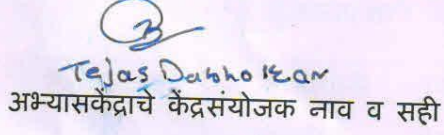 Tejas Dabholkar
अभ्यासकेंद्राचे केंद्रसंयोजक नाव व सही